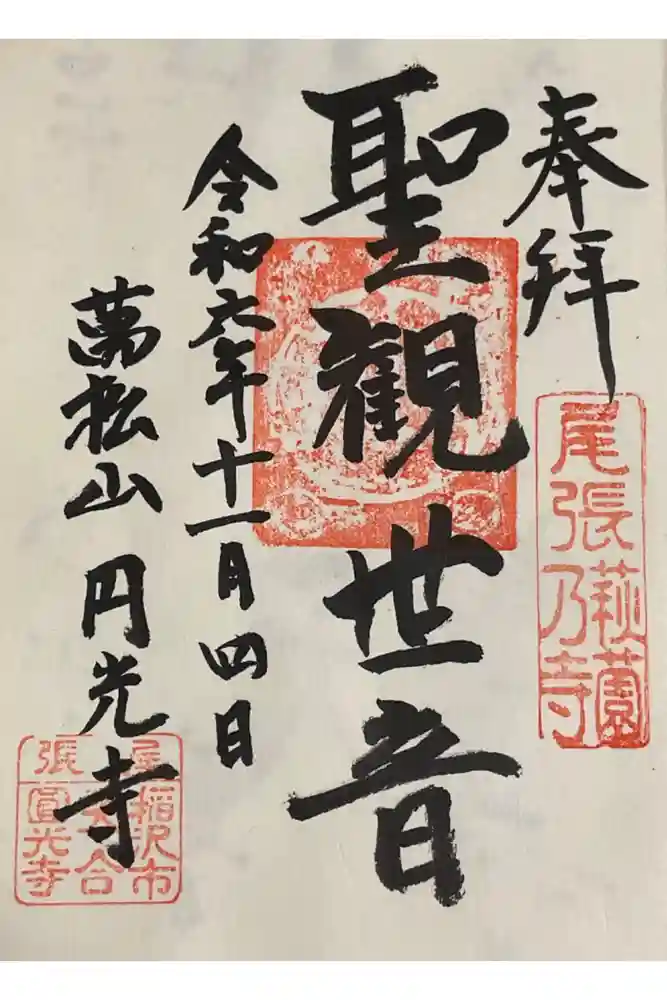 奉拝
尾張乃寺
萩園
聖観世音
令和六年十一月四日
萬松山 円光寺
尾張
稲沢市
圓光寺